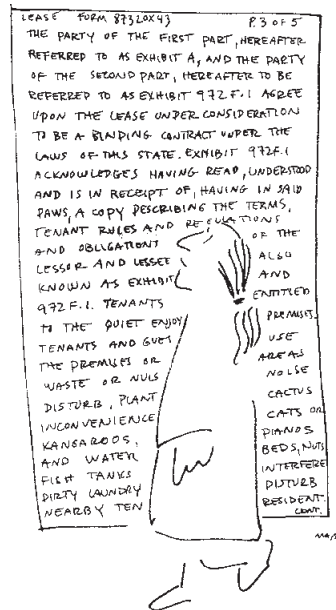 LEASE FORM 87320X43 P. 3 OF 5
THE PARTY OF THE FIRST PART, HEREAFTER
REFERRED TO AS EXHIBIT A, AND THE PARTY
OF THE SECOND PART, HEREAFTER TO BE
REFERRED TO AS EXHIBIT 972F.1 AGREE
UPON THE LEASE UNDER CONSIDERATION
TO BE A BINDING CONTRACT UNDER THE
LAWS OF THIS STATE. EXHIBIT 972F.1
ACKNOWLEDGES HAVING READ, UNDERSTOOD
AND IS IN RECEIPT OF, HAVING IN SAID
PAWS, A COPY DESCRIBING THE TERMS,
TENANT RULES AND REGULATIONS
AND OBLIGATIONS OF THE
LESSOR AND LESSEE ALSO
KNOWN AS EXHIBIT AND
972F.1. TENANTS ENTITLED
TO THE QUIET ENJOY PREMISES.
TENANTS AND GUES USE
THE PREMISES OR AREAS
WASTE OR NUIS NOISE
DISTURB, PLANT CACTUS
INCONVENIENCE CATS OR
KANGAROOS, PIANOS
AND WATER BEDS, NUTS
FISH TANKS INTERFERE
DIRTY LAUNDRY DISTURB
NEARBY TEN RESIDENT.
CONT.